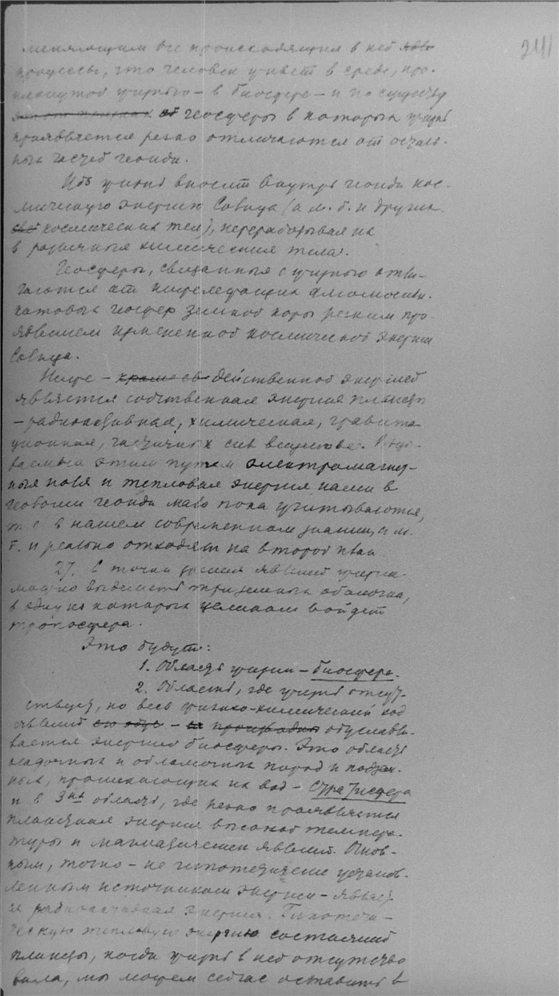 211
меняющим все происходящия в ней
процессы, что человек живет в среде, про-
никнутой жизнью – в биосфере – и по существу
геосферы в которых жизнь
проявляется резко отличаются от осталь-
ных частей геоида.
Ибо жизнь вносит внутрь геоида кос-
мическую энергию Солнца (а м. б. и других
космических тел), перерабатывая их
в различныя химическия тела.
Геосферы, связанныя с жизнью отли-
чаются от нижележащих алюмосили-
катовых геосфер земной коры резким про-
явлением измененной космической энергии
Солнца.
Ниже – действенной энергией
является собственная энергия планеты
– радиоактивная, химическая, гравита-
ционная, частичных сил вещества.
ваемыя этим путем электромагнит-
ныя поля и тепловая энергия нами в
геоида мало пока учитываются,
т. е. в нашем современном знании, и м.
б. и реально отходят на второй план.
27. С точки зрения явлений жизни
можно выделить три земных оболочки,
в одну из которых целиком войдет
тропосфера.
Это будут:
1. Область жизни – биосфера.
2. Области, где жизнь отсут-
ствует, но весь физико-химический ход
явлений обуславли-
вается энергией биосферы. Это область
осадочных и обломочных пород и подзем-
ных, проникающих их вод – Стратисфера
и в 3их области, где резко проявляется
планетная энергия высокой темпера-
туры и магматических явлений. Основ-
ным, точно – не гипотетически установ-
ленным источником энергии – являет-
ся радиоактивная энергия. Гипотети-
ческую тепловую энергию состояний
планеты, когда жизнь в ней отсутство-
вала, мы можем сейчас оставить в